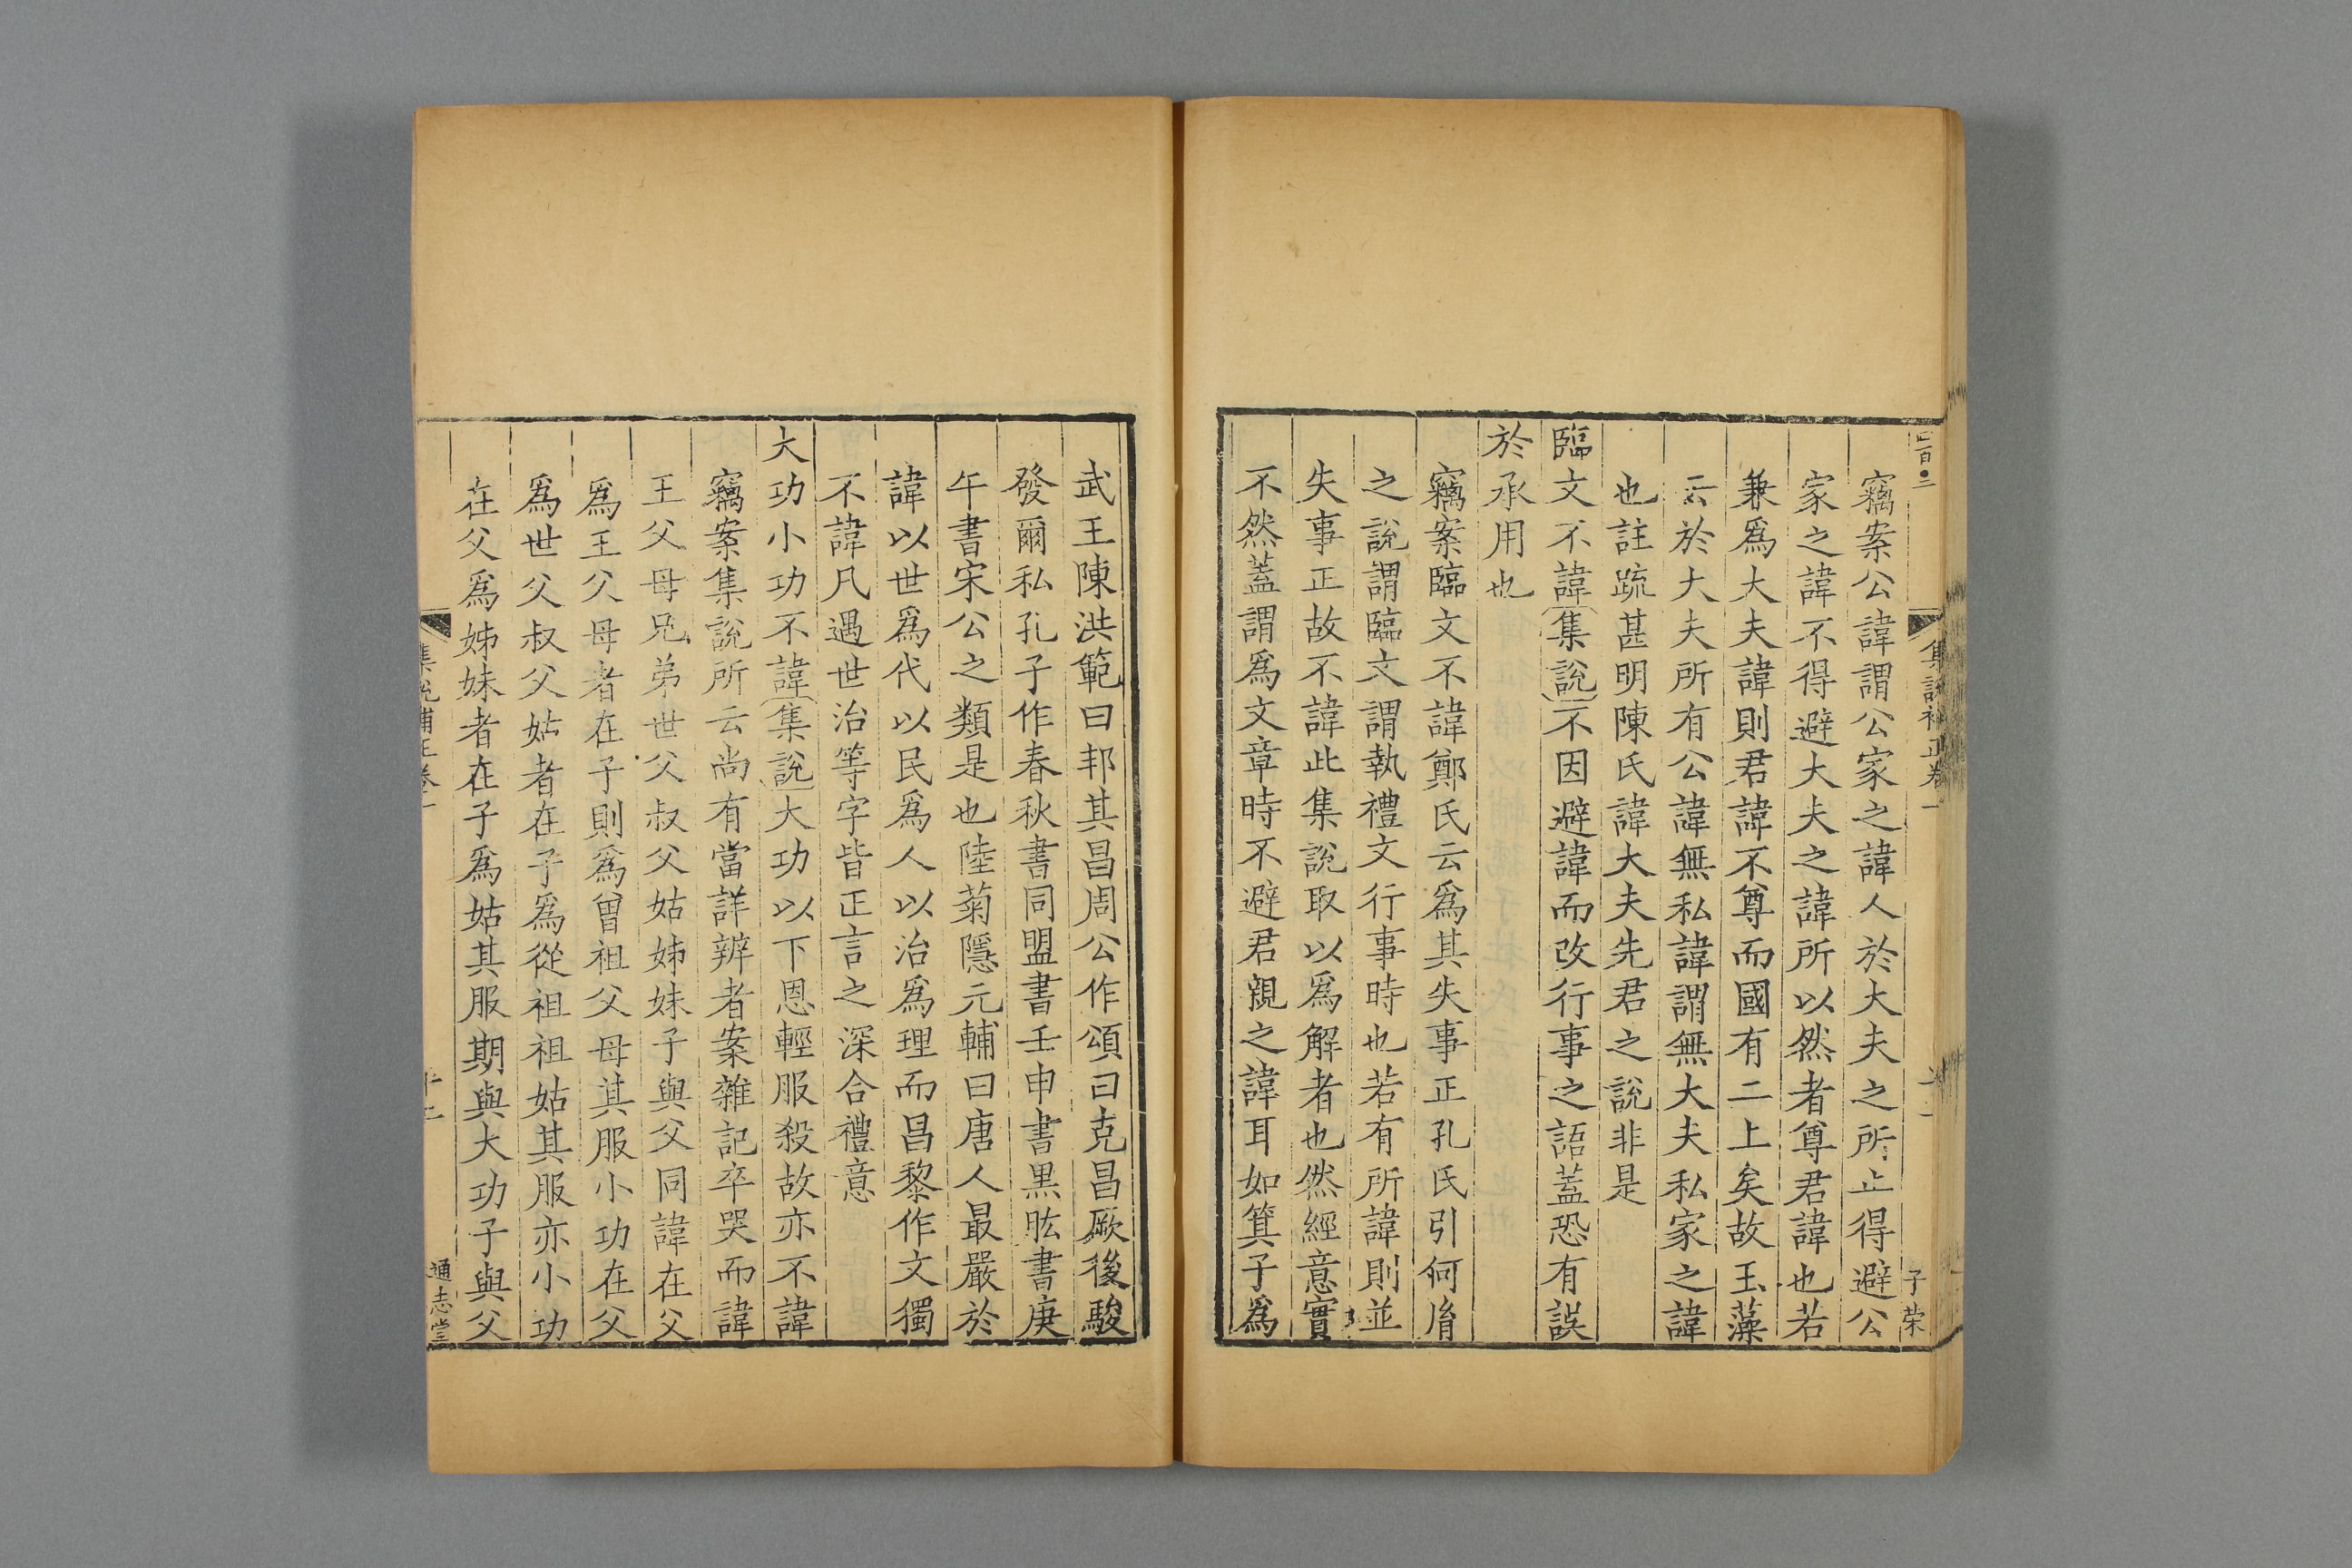 竊案公諱謂公家之諱人於大夫之所止得避公
家之諱不得避大夫之諱所以然者尊君諱也若
兼爲大夫諱則君諱不尊而國有二上矣故玉藻
云於大夫所有公諱無私諱謂無大夫私家之諱
也註疏甚明陳氏諱大夫先君之說非是
臨文不諱集說不因避諱而改行事之語蓋恐有誤
於承用也
竊案臨文不諱鄭氏云爲其失事正孔氏引何胤
之說謂臨文謂執禮文行事時也若有所諱則並
失事正故不諱此集說取以爲解者也然經意實
不然蓋謂爲文章時不避君親之諱耳如箕子爲
子荣
武王陳洪範曰邦其昌周公作頌曰克昌厥後駿
發爾私孔子作春秋書同盟書壬申書黑肱書庚
午書宋公之類是也陸菊隱元輔曰唐人最嚴於
諱以世爲代以民爲人以治爲理而昌黎作文獨
不諱凡遇世治等字皆正言之深合禮意
大功小功不諱集說大功以下恩輕服殺故亦不諱
竊案集說所云尚有當詳辨者案雜記卒哭而諱
王父母兄弟世父叔父姑姊妹子與父同諱在父
爲王父母者在子則爲曾祖父母其服小功在父
爲世父叔父姑者在子爲從祖祖姑其服亦小功
在父爲姊妹者在子爲姑其服期與大功子與父
集說補正卷一
十二
通志堂